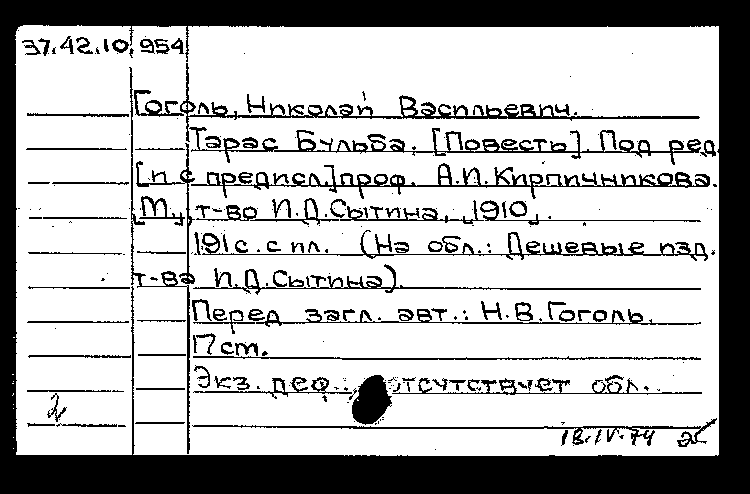 37.42.10.954
Гоголь, Николай Васильевич.
Тарас Бульба. [Повесть]. Под ред.
[и с предисл.] проф. А.И. Кирпичникова.
[М.], т-во И.Д. Сытина, [1910].
191 с. с ил. (На обл.: Дешевые изд.
т-ва И.Д. Сытина).
Перед загл. авт.: Н.В. Гоголь.
Пст.
Экз. деф.: отсутствует обл.
2
18.IV.74